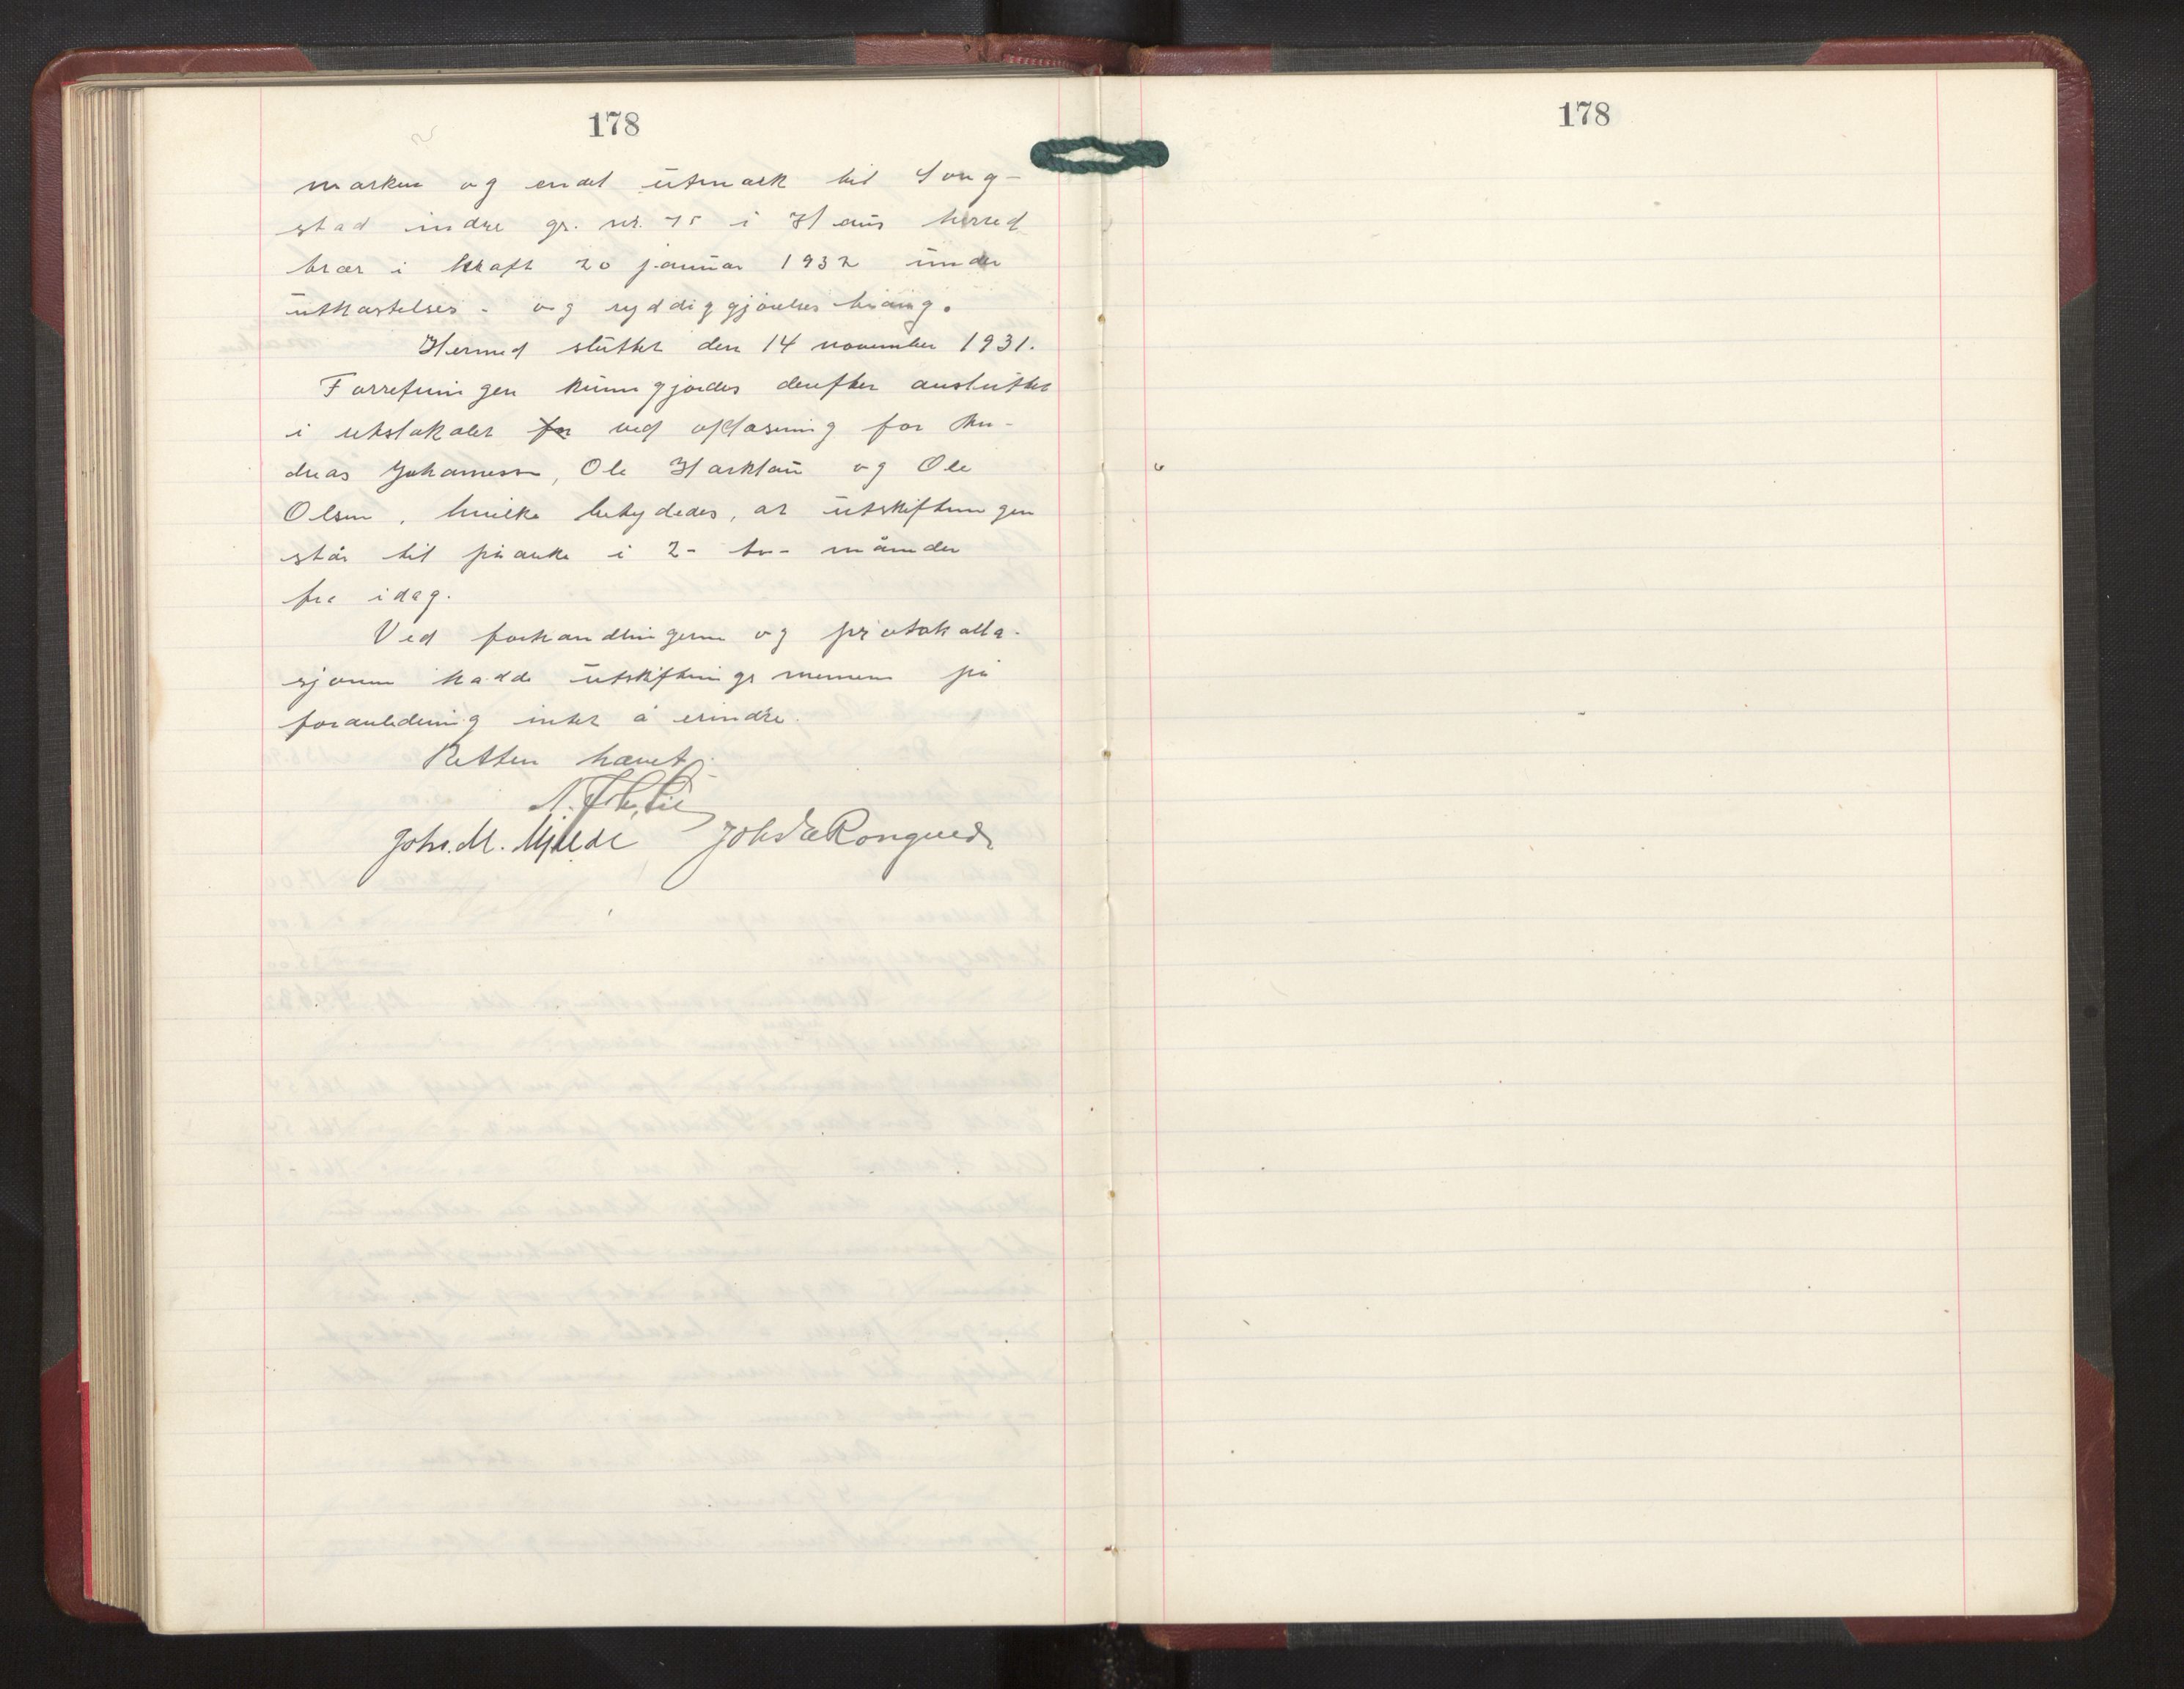 178
marken og endel utmark til Song-
stad indre gr. nr. 75 i Haus herred
trær i kraft 20 januar 1932 under
utkastelses- og ryddiggjørelsestvang.
Hermed sluttet den 14 november 1931.
Forretningen kunngjordes derefter avsluttet
i rettslokalet for ved oplæsning for An-
dreas Johannessen, Ole Harklau og Ole
Olsen, hvilke betydedes, at utskiftningen
står til påanke i 2- to- måneder
fra idag.
Ved forhandlingerne og protokolla-
sjonen hadde utskiftningsmennene på
foranledning intet å erindre.
Retten hævet.
Johs. M. Mjelde Johs Æ Rongved
178